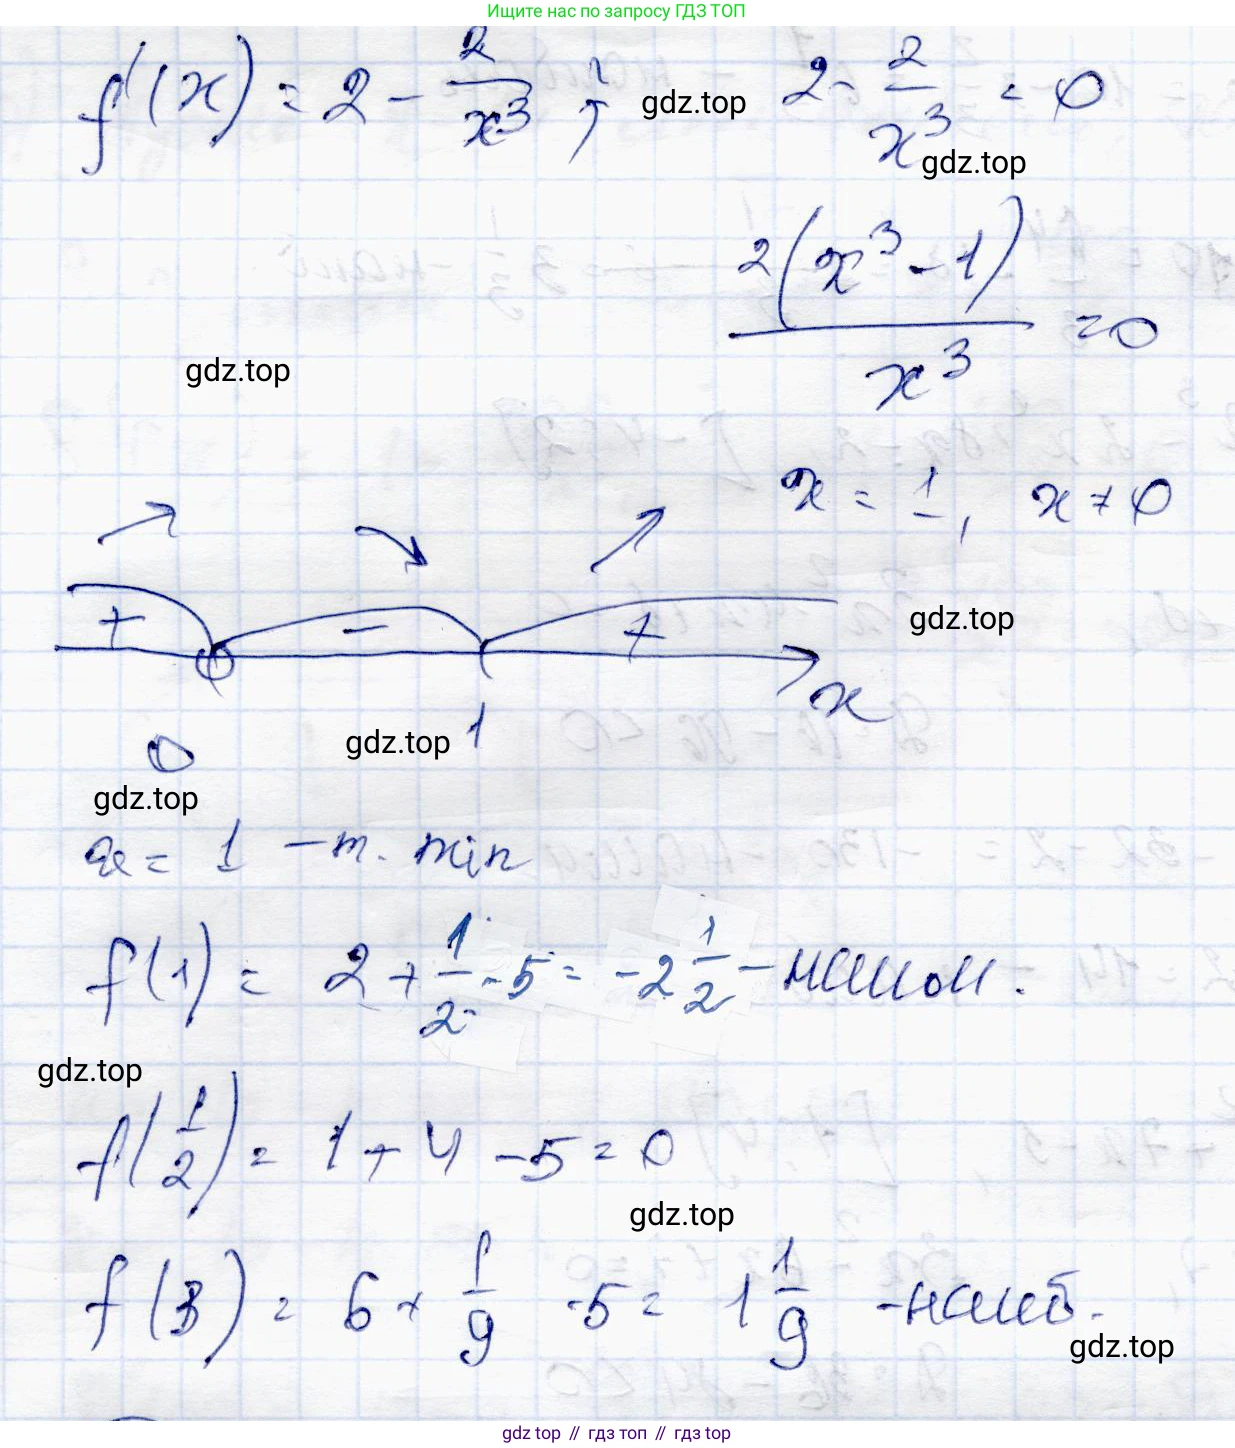 Ищите нас по запросу ГДЗ ТОП
f'(x) = 2 - 2/x³ ; gdz.top 2 - 2/x³ = 0
gdz.top
2(x³ - 1)/x³ = 0
gdz.top
x = 1, x ≠ 0
+ - + gdz.top
x
0 gdz.top 1
gdz.top
x = 1 - т. min
f(1) = 2 + 1/2 - 5 = -2 1/2 - наим.
gdz.top
f(1/2) = 1 + 4 - 5 = 0
gdz.top
f(3) = 6 + 1/9 - 5 = 1 1/9 - наиб.
gdz.top
gdz top // гдз топ // gdz top